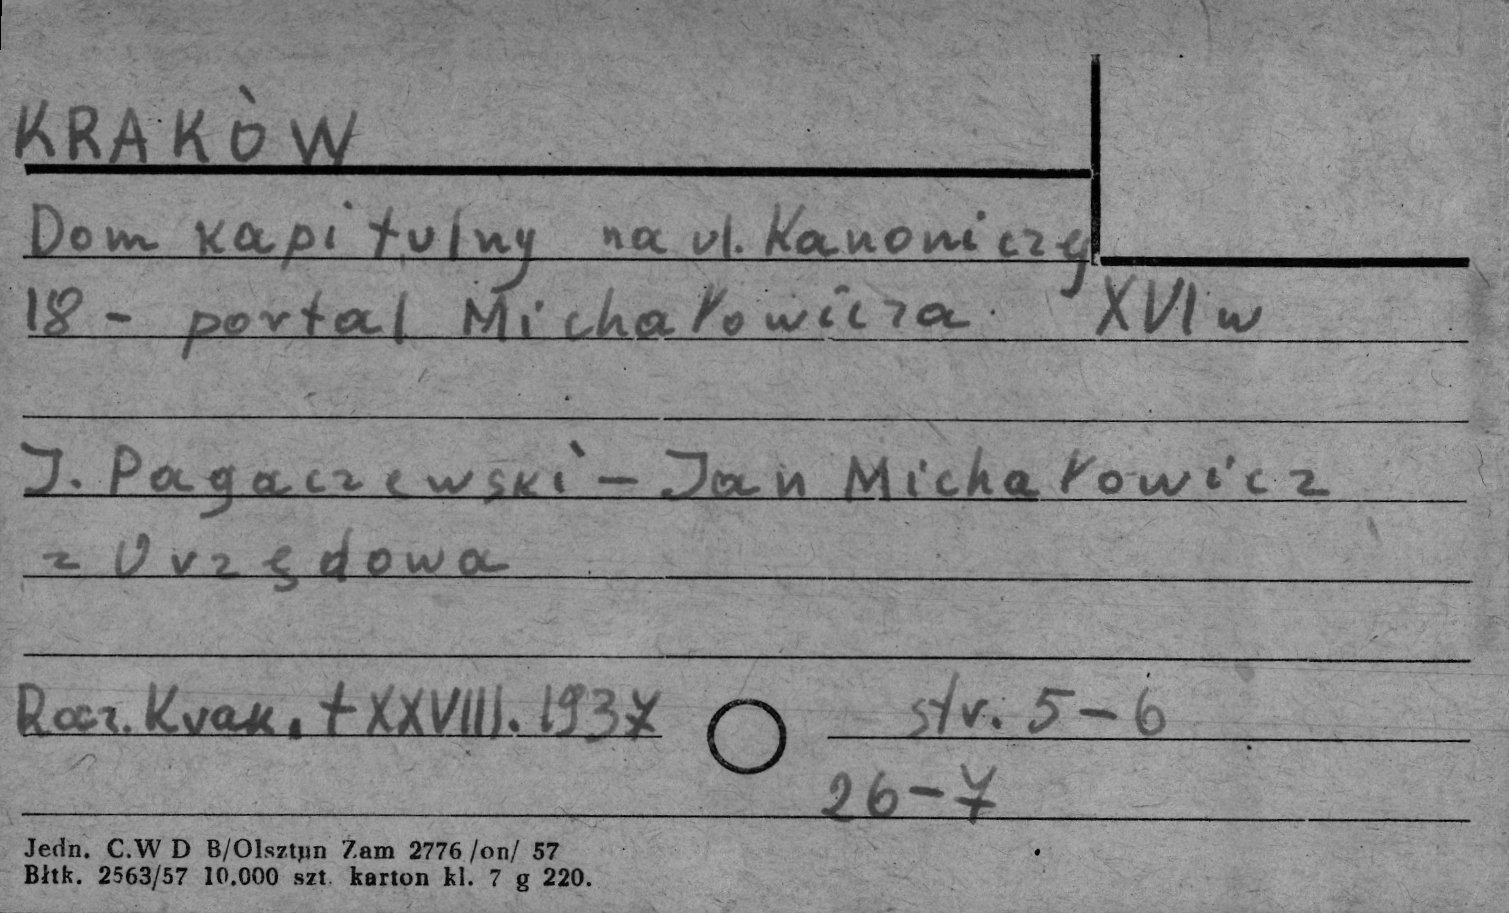 KRAKÒW
Dom kapitulny na ul. Kanoniczej
18 - portal Michałowicza. XVI w
J. Pagaczewski - Jan Michałowicz
z Urzędowa
Rocz. Krak. t XXVIII. 1937 str. 5-6
26-7
Jedn. C.W D B/Olsztyn Zam 2776/on/ 57
Błtk. 2563/57 10.000 szt. karton kl. 7 g 220.